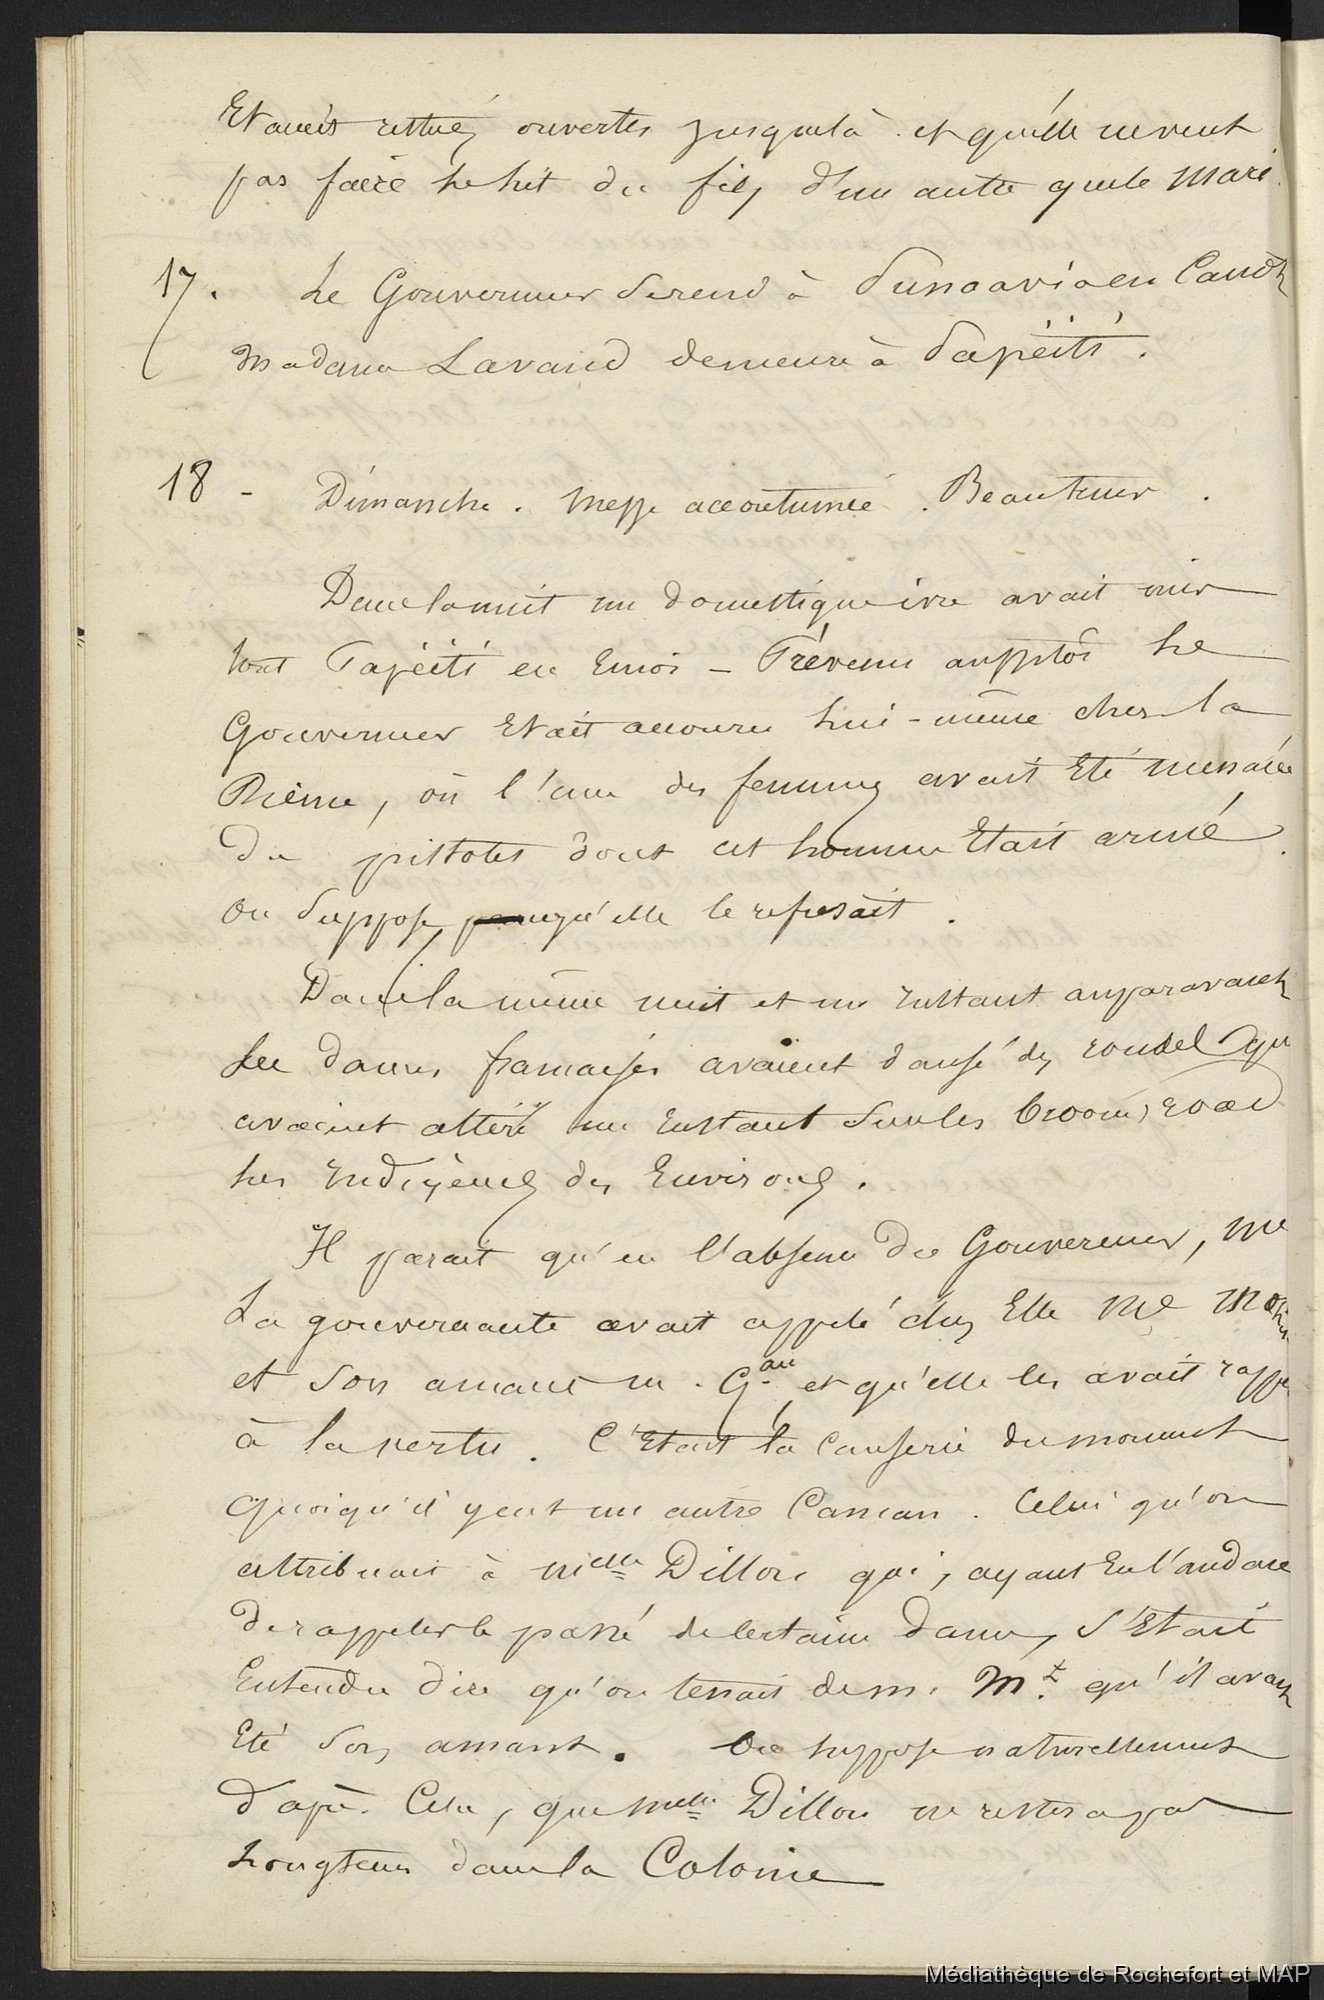 Etaient restées ouvertes jusque là et qu'elle ne veut
pas faire le lit du fils d'un autre que le mari.
17. Le Gouverneur se rend à Punaavia en Canot
Madame Lavaud demeure à Papéiti.
18 - Dimanche. Messe accoutumée. Beau tems.
Dans la nuit un domestique ivre avait mis
tout Papéiti en Emoi - Prévenu aussitôt le
Gouverneur Etait accouru lui-même chez la
Reine, où l'une des femmes avait Eté menacée
de pistolet dont cet homme Etait armé.
On Suppose qu'elle le refusait.
Dans la même nuit et un instant auparavant
les dames françaises avaient dansé des rondes qui
avaient attiré un instant sur les broom road
les indigènes des Environs.
Il parait qu'en l'absence du Gouverneur, Me
La gouvernante avait appelé chez Elle Me
et Son amant M. G.au et qu'elle les avait
à la vertu. C'Etait la causerie du moment
quoiqu'il y eut un autre Cancan. Celui qu'on
attribuait à Melle Dillon qui, ayant Eu l'audace
de rappeler le passé de certaine dame, s'Etait
Entendu dire qu'on tenait de M. M.t qu'il avait
Eté Son amant. On suppose naturellement
d'apr. Cela, que Melle Dillon ne restera pas
longtems dans la Colonie
Médiathèque de Rochefort et MAP